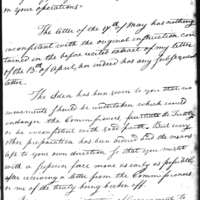 on your operations.
The letter of the 17th of May has nothing
inconsistent with the original instruction con
tained in the before recited extract of my letter
of the 13th of April, nor indeed has any subsequent
letter.
The Idea has been never to you that no
movements should be undertaken which could
endanger the Commissioners, frustrate the Treaty
or be inconsistent with good faith. But every
other preparation has been ordered and the mode
left to your own direction, so that you might
with a superior force move as early as possible
after receiving a letter from the Commissioners
or me of the treaty being broken off